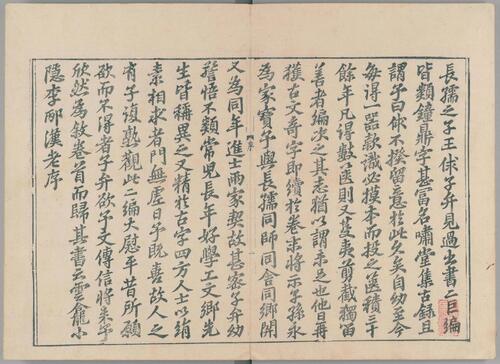 長孺之子王俅子弁見過出書二巨編
皆類鐘鼎字甚富名嘯堂集古録且
謂予曰俅不揆留意於此久矣自幼至今
每得一器款識必摸本而投之篋積三十
餘年凡得數篋則又芟夷剪截獨留
善者編次之其志猶以謂未足也他日再
獲古文奇字即續於卷末將示子孫永
為家寶予與長孺同師同舍同鄉關
又為同年進士兩家契故甚密子弁幼
警悟不類常兒長年好學工文鄉先
生皆稱異之又精於古字四方人士以絹
素相求者門無虛日予既喜故人之
有子復熟觀此二編大慰平昔所願
欲而不得者子弁欲予文傳信將来予
欣然為敘卷首而歸其書云雲龕小
隱李邴漢老序